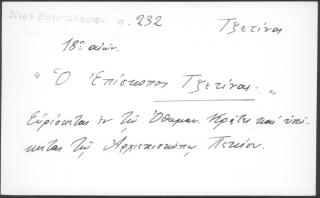 Νέον Επιστολάριον σ. 232 Τζετίνας
18ος αιών.
"Ὁ Ἐπίσκοπος Τζετίνας."
Εὑρίσκεται ἐν τῷ Ὀθωμαν. Κράτει καὶ ὑπό-
κειται τῷ Ἀρχιεπισκόπῳ Πεκίου.